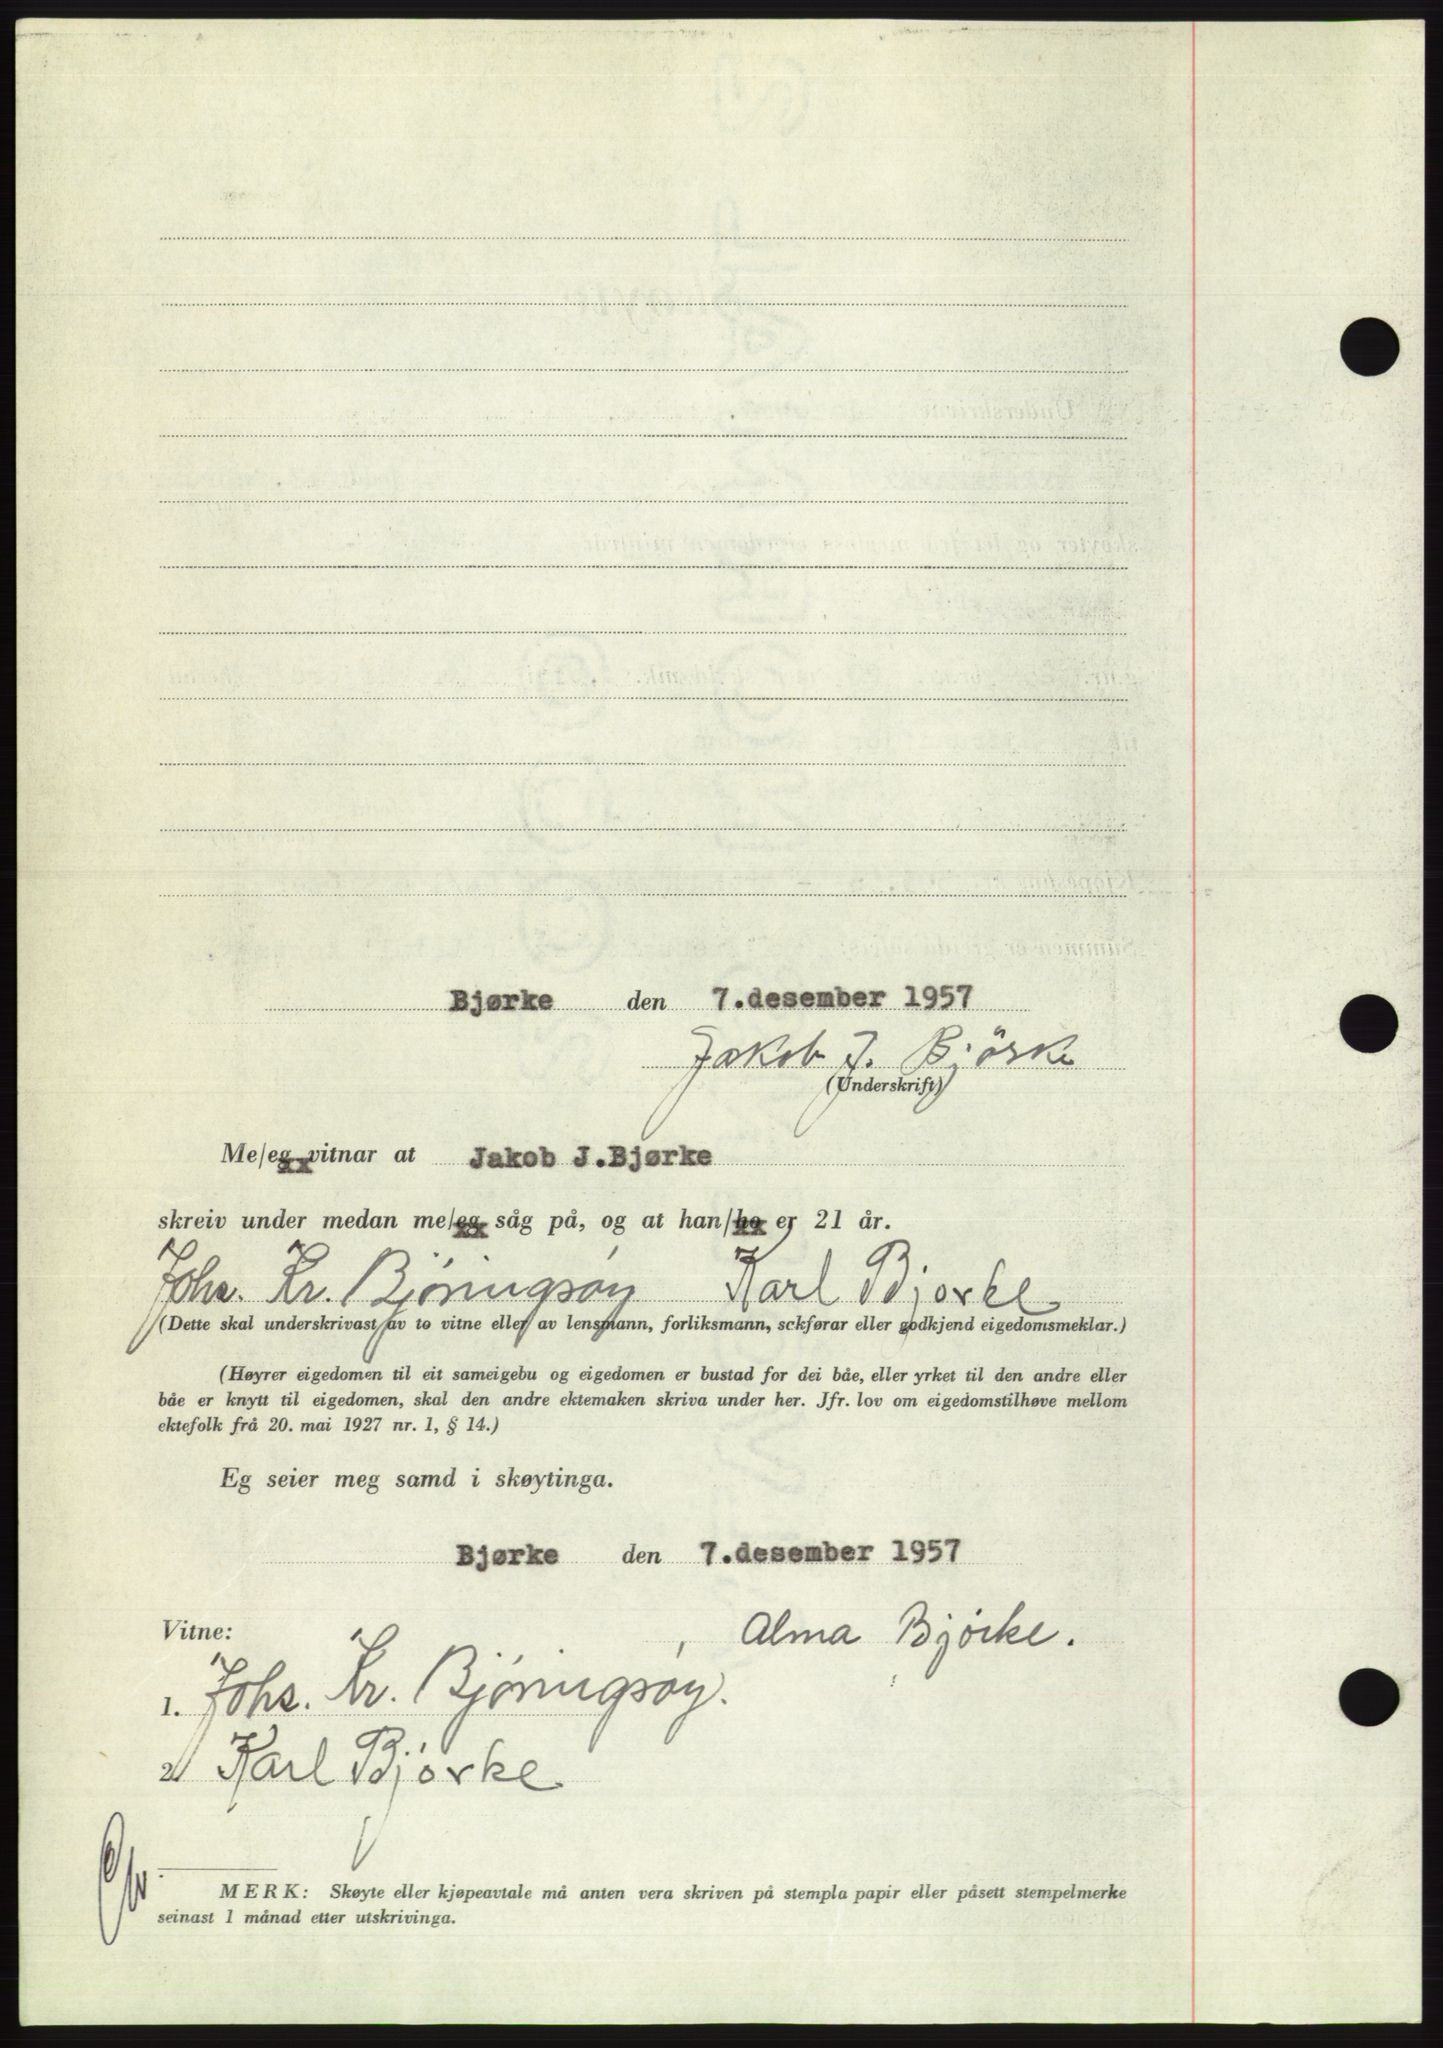 Bjørke den 7.desember 1957
Jakob J. Bjørke
(Underskrift)
Me/eg vitnar at Jakob J.Bjørke
skreiv under medan me/eg såg på, og at han/ho er 21 år.
Johs. Kr. Bjøringsøy Karl Bjørke
(Dette skal underskrivast av to vitne eller av lensmann, forliksmann, sckførar eller godkjend eigedomsmeklar.)
(Høyrer eigedomen til eit sameigebu og eigedomen er bustad for dei båe, eller yrket til den andre eller
båe er knytt til eigedomen, skal den andre ektemaken skriva under her. Jfr. lov om eigedomstilhøve mellom
ektefolk frå 20. mai 1927 nr. 1, § 14.)
Eg seier meg samd i skøytinga.
Bjørke den 7.desember 1957
Vitne: , Alma Bjørke.
1. Johs. Kr. Bjøringsøy.
2. Karl Bjørke
MERK: Skøyte eller kjøpeavtale må anten vera skriven på stempla papir eller påsett stempelmerke
seinast 1 månad etter utskrivinga.